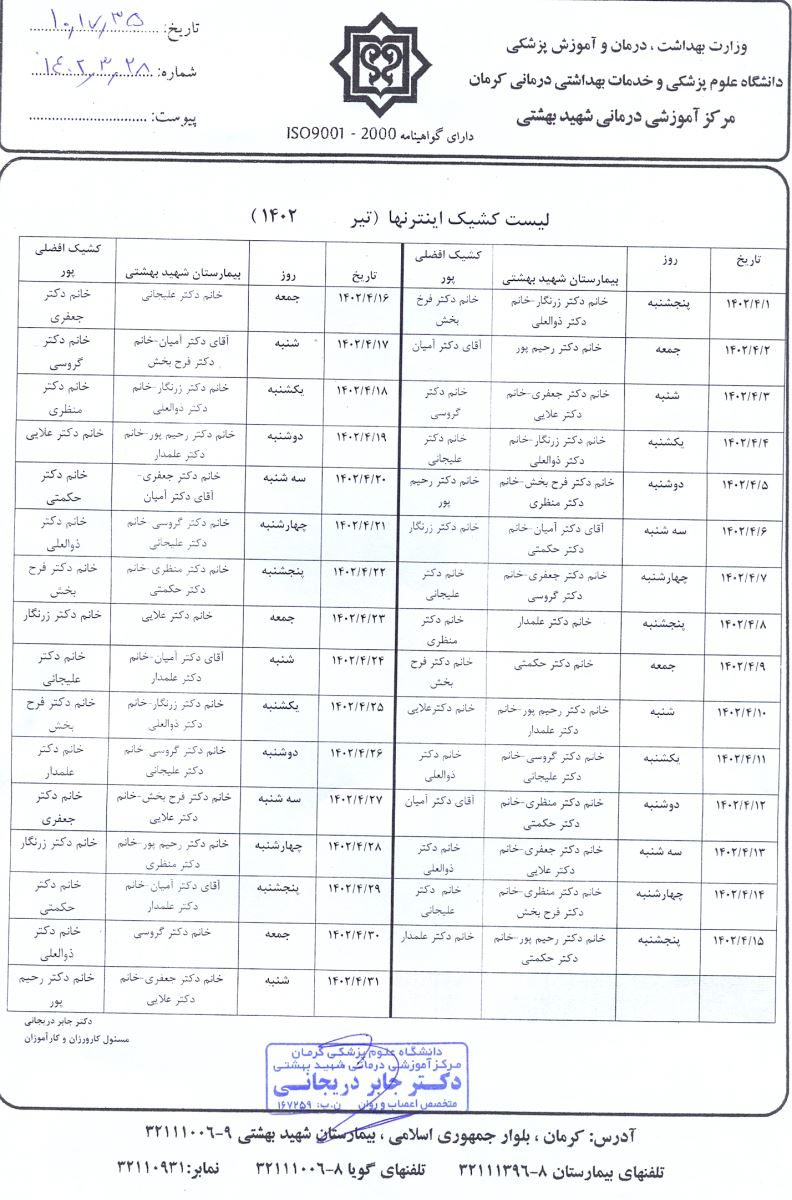 وزارت بهداشت ، درمان و آموزش پزشکی
دانشگاه علوم پزشکی و خدمات بهداشتی درمانی کرمان
مرکز آموزشی درمانی شهید بهشتی
دارای گواهینامه ISO9001 - 2000
تاریخ: ۱۰,۱۷,۳۵
شماره: ۱۴۰۲,۳,۲۸
پیوست:
لیست کشیک اینترنها (تیر ۱۴۰۲)
تاریخ روز بیمارستان شهید بهشتی کشیک افضلی پور
۱۴۰۲/۴/۱ پنجشنبه خانم دکتر زرنگار-خانم دکتر ذوالعلی خانم دکتر فرخ بخش
۱۴۰۲/۴/۲ جمعه خانم دکتر رحیم پور آقای دکتر آمیان
۱۴۰۲/۴/۳ شنبه خانم دکتر جعفری-خانم دکتر علایی خانم دکتر گروسی
۱۴۰۲/۴/۴ یکشنبه خانم دکتر زرنگار-خانم دکتر ذوالعلی خانم دکتر علیجانی
۱۴۰۲/۴/۵ دوشنبه خانم دکتر فرح بخش-خانم دکتر منظری خانم دکتر رحیم پور
۱۴۰۲/۴/۶ سه شنبه آقای دکتر آمیان-خانم دکتر حکمتی خانم دکتر زرنگار
۱۴۰۲/۴/۷ چهارشنبه خانم دکتر جعفری-خانم دکتر گروسی خانم دکتر علیجانی
۱۴۰۲/۴/۸ پنجشنبه خانم دکتر علمدار خانم دکتر منظری
۱۴۰۲/۴/۹ جمعه خانم دکتر حکمتی خانم دکتر فرح بخش
۱۴۰۲/۴/۱۰ شنبه خانم دکتر رحیم پور-خانم دکتر علمدار خانم دکترعلایی
۱۴۰۲/۴/۱۱ یکشنبه خانم دکتر گروسی-خانم دکتر علیجانی خانم دکتر ذوالعلی
۱۴۰۲/۴/۱۲ دوشنبه خانم دکتر منظری-خانم دکتر حکمتی آقای دکتر آمیان
۱۴۰۲/۴/۱۳ سه شنبه خانم دکتر جعفری-خانم دکتر علایی خانم دکتر ذوالعلی
۱۴۰۲/۴/۱۴ چهارشنبه خانم دکتر منظری-خانم دکتر فرح بخش خانم دکتر علیجانی
۱۴۰۲/۴/۱۵ پنجشنبه خانم دکتر رحیم پور-خانم دکتر حکمتی خانم دکتر علمدار
تاریخ روز بیمارستان شهید بهشتی کشیک افضلی پور
۱۴۰۲/۴/۱۶ جمعه خانم دکتر علیجانی خانم دکتر جعفری
۱۴۰۲/۴/۱۷ شنبه آقای دکتر آمیان-خانم دکتر فرح بخش خانم دکتر گروسی
۱۴۰۲/۴/۱۸ یکشنبه خانم دکتر زرنگار-خانم دکتر ذوالعلی خانم دکتر منظری
۱۴۰۲/۴/۱۹ دوشنبه خانم دکتر رحیم پور-خانم دکتر علمدار خانم دکتر علایی
۱۴۰۲/۴/۲۰ سه شنبه خانم دکتر جعفری-آقای دکتر آمیان خانم دکتر حکمتی
۱۴۰۲/۴/۲۱ چهارشنبه خانم دکتر گروسی خانم دکتر علیجانی خانم دکتر ذوالعلی
۱۴۰۲/۴/۲۲ پنجشنبه خانم دکتر منظری-خانم دکتر حکمتی خانم دکتر فرح بخش
۱۴۰۲/۴/۲۳ جمعه خانم دکتر علایی خانم دکتر زرنگار
۱۴۰۲/۴/۲۴ شنبه آقای دکتر آمیان-خانم دکتر علمدار خانم دکتر علیجانی
۱۴۰۲/۴/۲۵ یکشنبه خانم دکتر زرنگار-خانم دکتر ذوالعلی خانم دکتر فرح بخش
۱۴۰۲/۴/۲۶ دوشنبه خانم دکتر گروسی-خانم دکتر علیجانی خانم دکتر علمدار
۱۴۰۲/۴/۲۷ سه شنبه خانم دکتر فرح بخش-خانم دکتر علایی خانم دکتر جعفری
۱۴۰۲/۴/۲۸ چهارشنبه خانم دکتر رحیم پور-خانم دکتر منظری خانم دکتر زرنگار
۱۴۰۲/۴/۲۹ پنجشنبه آقای دکتر آمیان-خانم دکتر علمدار خانم دکتر حکمتی
۱۴۰۲/۴/۳۰ جمعه خانم دکتر گروسی خانم دکتر ذوالعلی
۱۴۰۲/۴/۳۱ شنبه خانم دکتر جعفری-خانم دکتر علایی خانم دکتر رحیم پور
دکتر جابر دریجانی
مسئول کارورزان و کارآموزان
دانشگاه علوم پزشکی کرمان
مرکز آموزشی درمانی شهید بهشتی
دکتر جابر دریجانی
متخصص اعصاب و روان ن.پ: ۱۶۷۲۵۹
آدرس: کرمان ، بلوار جمهوری اسلامی ، بیمارستان شهید بهشتی ۹-۳۲۱۱۱۰۰۶
تلفنهای بیمارستان ۸-۳۲۱۱۱۳۹۶ تلفنهای گویا ۸-۳۲۱۱۱۰۰۶ نمابر:۳۲۱۱۰۹۳۱